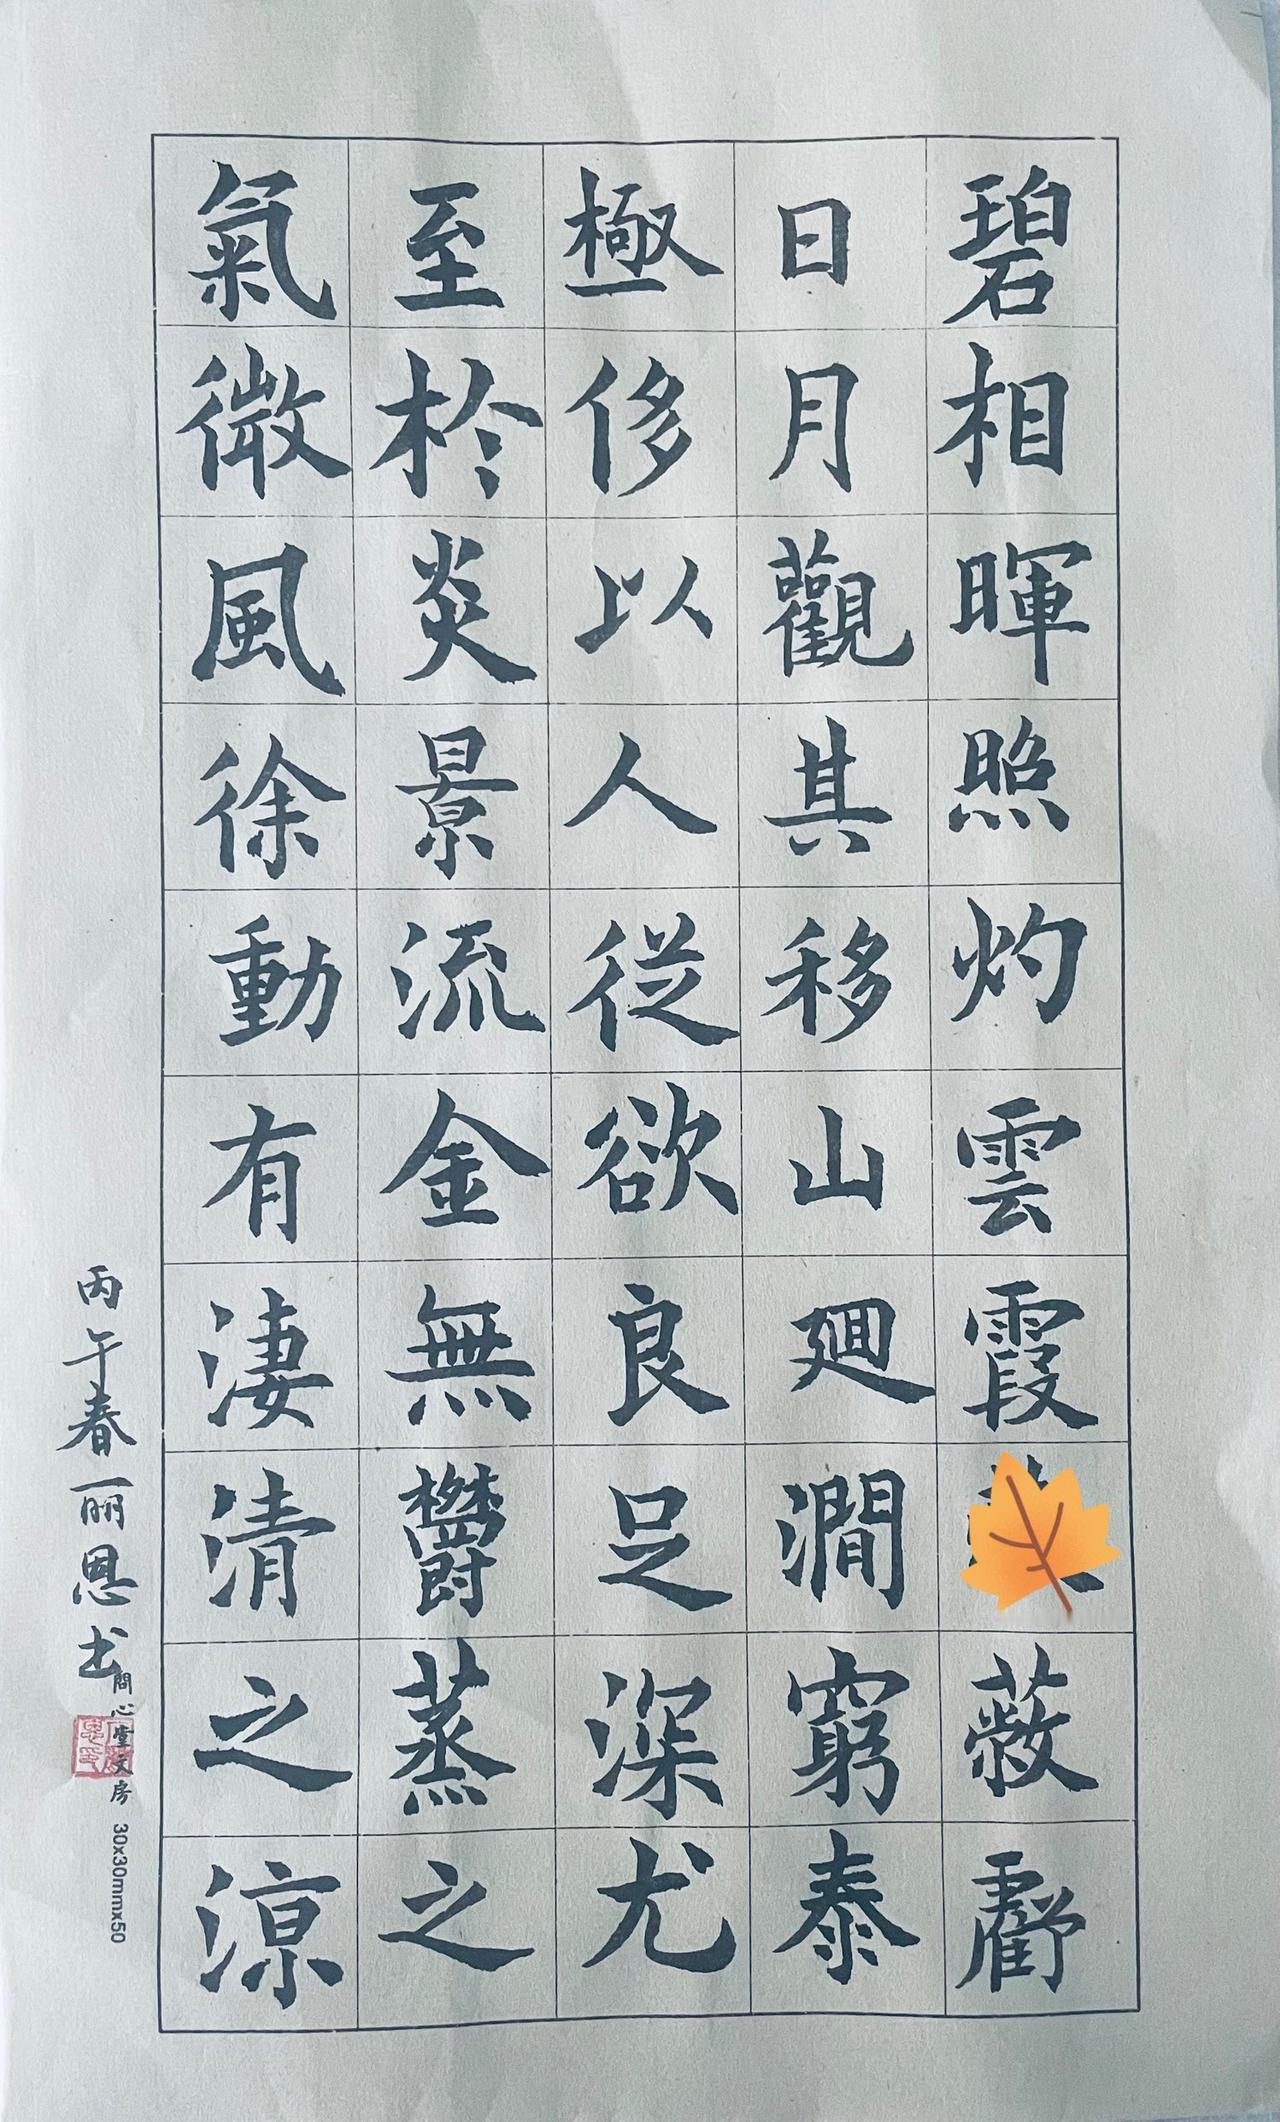 碧相暉照灼雲霞蔽虧
日月觀其移山迴澗窮泰
極侈以人從欲良足深尤
至於炎景流金無鬱蒸之
氣微風徐動有淒清之涼
丙午春丽恩书
問心堂文房 30x30mmx50